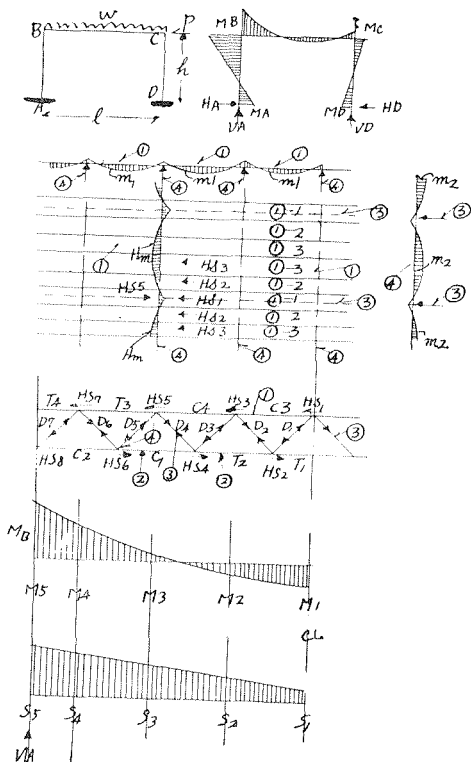 W
B C P
h
A D
l
MB MC
HA MA MD HD
VA VD
① ① ①
④ m1 ④ m1 ④ m1 ④
① 1 ③
① 2
① ① 3
Hm HS3 ① 3 ①
HS2 ① 2
HS5 HS1 ① 1 ③
HS2 ① 2
Hm HS3 ① 3
④ ④ ④
m2
③
④ m2
③
m2
T4 HS7 T3 HS5 C4 HS3 ① C3 HS1
D7 D6 D5 ④ D4 D3 D2 D1 ③
HS8 C2 HS6 C1 HS4 T2 HS2 T1
② ③ ②
MB
M5 M4 M3 M2 M1
CL
S5 S4 S3 S2 S1
VA